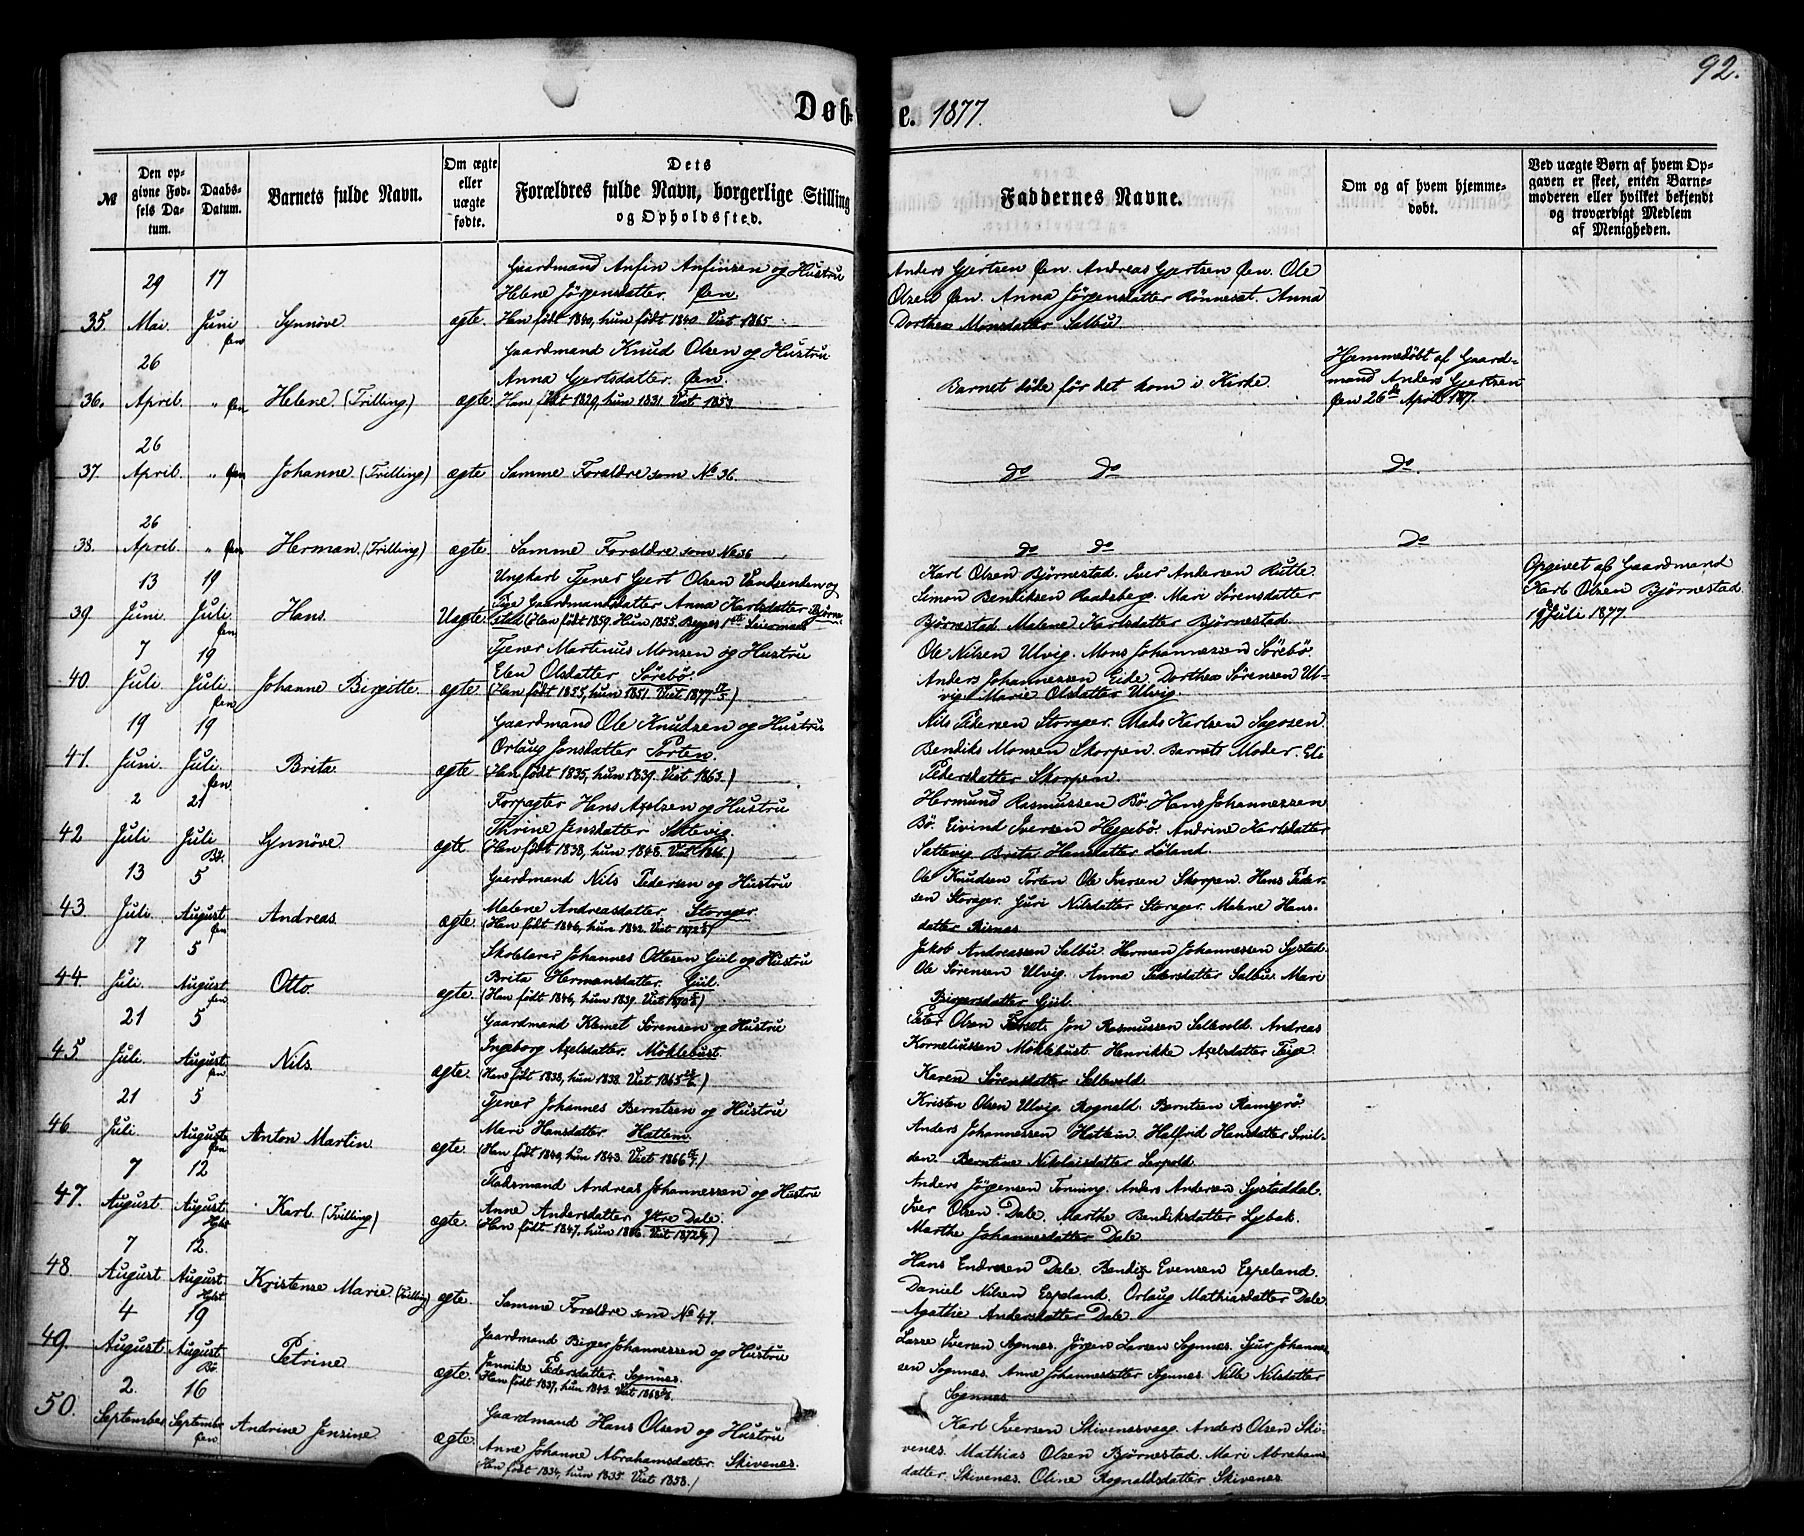 92.
Døb-
e. 1877.
№
Den op-
givne Fød-
sels Da-
tum.
Daabs-
Datum.
Barnets fulde Navn.
Om ægte
eller
uægte
fødte.
Dets
Forældres fulde Navn, borgerlige Stilling
og Opholdssted.
Faddernes Navne.
Om og af hvem hjemme-
døbt.
Ved uægte Børn af hvem Op-
gaven er skeet, enten Barne-
moderen eller hvilket bekjendt
og troværdigt Medlem
af Menigheden.
35.
29
Mai.
17
Juni
Øen
Synnöve.
ægte.
Gaardmand Anfin Anfinsen og Hustru
Helene Jörgensdatter. Øen.
Han født 1840, hun født 1840. Viet 1865.
Anders Gjertsen Øen. Andreas Gjertsen Øen. Ole
Olsen Øen. Anna Jörgensdatter Rönneset. Anna
Dorthea Monsdatter Salbu.
36.
26
April.
" Øen
Helene. (Trilling)
ægte
Gaardmand Knud Olsen og Hustru
Anna Gjertsdatter. Øen.
Han født 1829, hun 1831. Viet 1853.
Barnet døde før det kom i Kirke.
Hjemmedöbt af Gaard-
mand Anders Gjertsen
Øen 26de April 1877.
37.
26
April.
" Øen
Johanne. (Trilling)
ægte
Samme Forældre som No 36.
do do
do.
38.
26
April.
" Øen
Herman. (Trilling)
ægte.
Samme Forældre som No 36
do do
do
39.
13
Juni.
19
Juli.
Øen
Hans.
Uægte
Ungkarl Tjener Gjert Olsen Vandsenden og
Pige Gaardmandsdatter Anna Karlsdatter Björne-
stad (Han født 1859. Hun 1855. Begges 1ste Leiermaal
Karl Olsen Björnestad. Iver Andersen Rutle.
Simon Bendiksen Raadsberg. Mari Sörensdatter
Björnestad. Malene Karlsdatter Björnestad.
Opgivet af Gaardmand
Karl Olsen Björnestad
19de Juli 1877.
40.
7
Juli.
19
Juli.
Øen
Johanne Birgitte.
ægte.
Tjener Martinus Monsen og Hustru
Elen Olsdatter Sörebö.
(Han født 1855, hun 1851. Viet 1877 17/5.)
Ole Nilsen Ulvig. Mons Johannessen Sörebö.
Anders Johannessen Eide. Dorthea Sörensen Ul-
vig. Marie Olsdatter Ulvig.
41.
19
Juni.
19
Juli.
Øen
Brita.
ægte
Gaardmand Ole Knudsen og Hustru
Orlaug Jonsdatter Torten.
(Han født 1835, hun 1839. Viet 1863.)
Nils Pedersen Storager. Mads Karlsen Sagosen.
Bendiks Monsen Skorpen. Barnets Moder. Eli
Pedersdatter Skorpen.
42
2
Juli
21
Juli
Bö.
Synnöve.
ægte
Forpagter Hans Axelsen og Hustru
Thrine Jensdatter Sattevig.
(Han født 1838, hun 1848. Viet 1866.)
Hermund Rasmussen Bö. Hans Johannessen
Bö. Eivind Iversen Heggebö. Andrine Karlsdatter
Sattevig. Brita Hansdatter Löland.
43.
13
Juli.
5
August.
Øen
Andreas.
ægte.
Gaardmand Nils Pedersen og Hustru
Malene Andreasdatter. Storager.
(Han født 1846, hun 1842. Viet 1872)
Ole Knudsen Torten. Ole Iversen Skorpen. Hans Peder-
sen Storager. Guri Nilsdatter Storager. Malene Hans-
datter Risnes.
44.
7
Juli.
5
August.
Øen
Otto.
ægte.
Skolelærer Johannes Ottesen Güil og Hustru
Brita Hermansdatter. Güil.
(Han født 1846, hun 1839. Viet 1870)
Jakob Andreassen Salbu. Herman Johannessen Systad.
Ole Sörensen Ulvig. Anna Pedersdatter Salbu. Mari
Birgersdatter Güil.
45
21
Juli.
5
August.
Øen
Nils.
ægte.
Gaardmand Klemet Sörensen og Hustru
Ingeborg Axelsdatter. Möklebust.
(Han født 1838, hun 1838. Viet 1865)
Peter Olsen. Jon Rasmussen Sellevold. Andreas
Korneliussen Möklebust. Henrikke Axelsdatter Teige.
Karen Sörensdatter Sellevold.
46.
21
Juli.
5
August.
Øen
Anton Martin.
ægte.
Tjener Johannes Berntsen og Hustru
Mari Hansdatter. Hatlem.
(Han født 1840, hun 1843. Viet 1866)
Kristen Olsen Ulvig. Rognald Berntsen Ramsgrö.
Anders Johannessen Hatlem. Halfrid Hansdatter Smil-
den. Berntine Nikolaisdatter Lerpold.
47.
7
August
12
August
Holst
Karl. (Tvilling)
ægte.
Pladsmand Andreas Johannessen og Hustru
Anne Andersdatter Ytre Dale.
(Han født 1847, hun 1846. Viet 1872)
Anders Jörgensen Tonning. Anders Andersen Systaddal.
Iver Olsen Dale. Marthe Bendiksdatter Lybak.
Marthe Johannesdatter Dale.
48
7
August
12.
August.
Holst
Kristense Marie. (Tvilling)
ægte.
Samme Forældre som No 47.
Hans Endresen Dale. Bendix Evensen Espeland.
Daniel Nilsen Espeland. Orlaug Mathiasdatter Dale.
Agathe Andersdatter Dale.
49.
4
August
19
August
Bö.
Petrine
ægte.
Gaardmand Birger Johannessen og Hustru
Jannike Pedersdatter. Sognnes.
Han født 1837, hun 1843. Viet 1868.
Lasse Iversen Sognnes. Jörgen Larsen Sognnes. Sjur Johannes-
sen Sognnes. Anne Johannesdatter Sognnes. Nille Nilsdatter
Sognnes
50.
2.
September
16
September
Øen
Andrine Jensine.
ægte.
Gaardmand Hans Olsen og Hustru
Anne Johanne Abrahamsdatter. Skivenes.
(Han født 1834, hun 1835. Viet 1858.)
Karl Iversen Skivenesvaag. Anders Olsen Ski-
venes. Mathias Olsen Björnestad. Mari Abrahams-
datter. Skivenes. Oline Rognaldsdatter Skivenes.